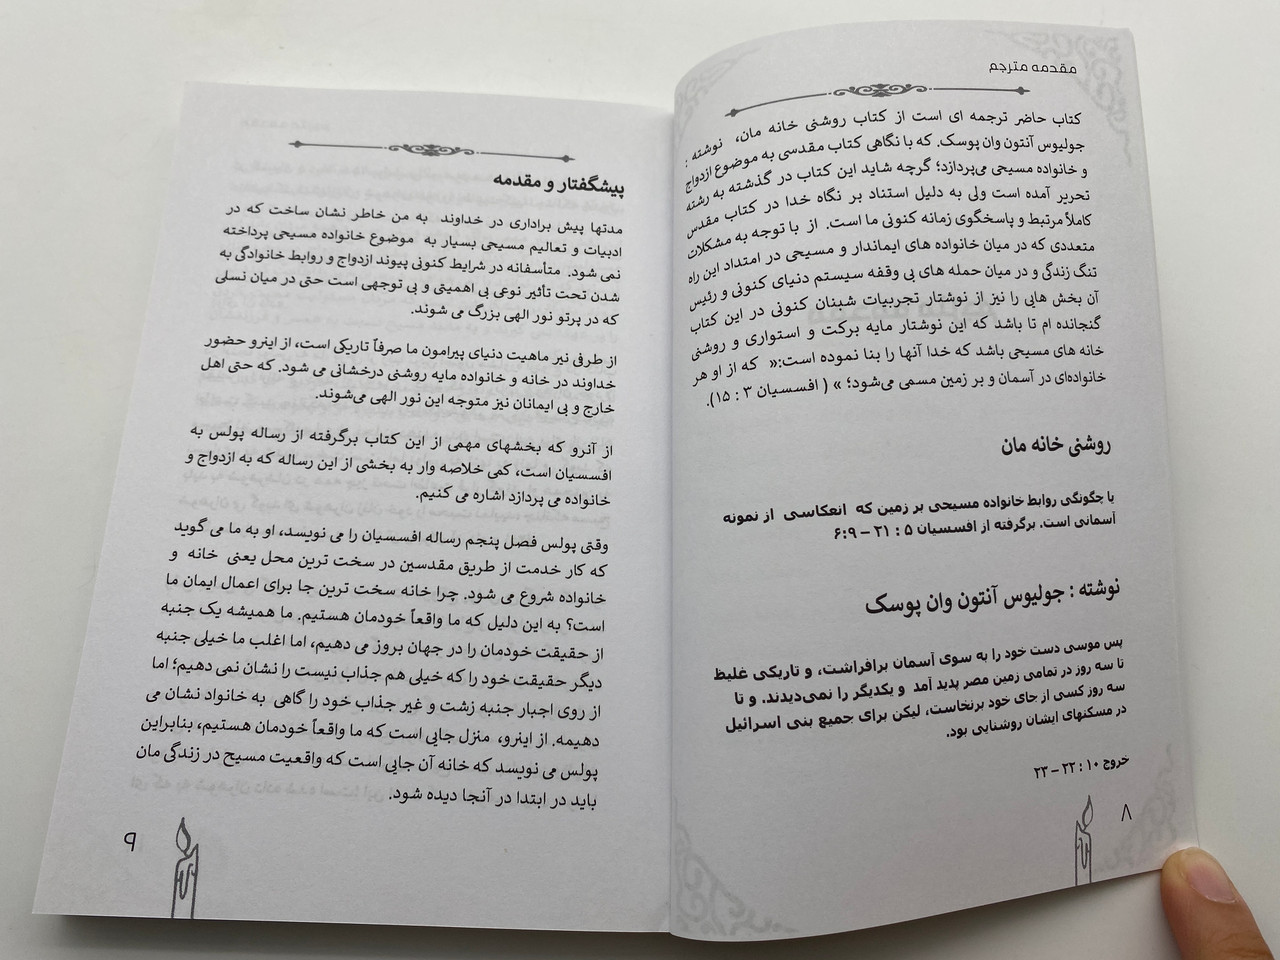 مقدمه مترجم
کتاب حاضر ترجمه ای است از کتاب روشنی خانه مان، نوشته :
جولیوس آنتون وان پوسک. که با نگاهی کتاب مقدسی به موضوع ازدواج
و خانواده مسیحی می‌پردازد؛ گرچه شاید این کتاب در گذشته به رشته
تحریر آمده است ولی به دلیل استناد بر نگاه خدا در کتاب مقدس
کاملاً مرتبط و پاسخگوی زمانه کنونی ما است. از با توجه به مشکلات
متعددی که در میان خانواده های ایماندار و مسیحی در امتداد این راه
تنگ زندگی و در میان حمله های بی وقفه سیستم دنیای کنونی و رئیس
آن بخش هایی را نیز از نوشتار تجربیات شبنان کنونی در این کتاب
گنجانده ام تا باشد که این نوشتار مایه برکت و استواری و روشنی
خانه های مسیحی باشد که خدا آنها را بنا نموده است:« که از او هر
خانواده‌ای در آسمان و بر زمین مسمی می‌شود؛ » ( افسسیان ۳ : ۱۵).
روشنی خانه مان
یا چگونگی روابط خانواده مسیحی بر زمین که انعکاسی از نمونه
آسمانی است. برگرفته از افسسیان ۵ : ۲۱ – ۶:۹
نوشته : جولیوس آنتون وان پوسک
پس موسی دست خود را به سوی آسمان برافراشت، و تاریکی غلیظ
تا سه روز در تمامی زمین مصر پدید آمد و یکدیگر را نمی‌دیدند. و تا
سه روز کسی از جای خود برنخاست، لیکن برای جمیع بنی اسرائیل
در مسکنهای ایشان روشنایی بود.
خروج ۱۰ : ۲۲ – ۲۳
۸
پیشگفتار و مقدمه
مدتها پیش براداری در خداوند به من خاطر نشان ساخت که در
ادبیات و تعالیم مسیحی بسیار به موضوع خانواده مسیحی پرداخته
نمی شود. متأسفانه در شرایط کنونی پیوند ازدواج و روابط خانوادگی به
شدن تحت تأثیر نوعی بی اهمیتی و بی توجهی است حتی در میان نسلی
که در پرتو نور الهی بزرگ می شوند.
از طرفی نیر ماهیت دنیای پیرامون ما صرفاً تاریکی است، از اینرو حضور
خداوند در خانه و خانواده مایه روشنی درخشانی می شود. که حتی اهل
خارج و بی ایمانان نیز متوجه این نور الهی می‌شوند.
از آنرو که بخشهای مهمی از این کتاب برگرفته از رساله پولس به
افسسیان است، کمی خلاصه وار به بخشی از این رساله که به ازدواج و
خانواده می پردازد اشاره می کنیم.
وقتی پولس فصل پنجم رساله افسسیان را می نویسد، او به ما می گوید
که کار خدمت از طریق مقدسین در سخت ترین محل یعنی خانه و
خانواده شروع می شود. چرا خانه سخت ترین جا برای اعمال ایمان ما
است؟ به این دلیل که ما واقعاً خودمان هستیم. ما همیشه یک جنبه
از حقیقت خودمان را در جهان بروز می دهیم، اما اغلب ما خیلی جنبه
دیگر حقیقت خود را که خیلی هم جذاب نیست را نشان نمی دهیم؛ اما
از روی اجبار جنبه زشت و غیر جذاب خود را گاهی به خانواد نشان می
دهیمه. از اینرو، منزل جایی است که ما واقعاً خودمان هستیم، بنابراین
پولس می نویسد که خانه آن جایی است که واقعیت مسیح در زندگی مان
باید در ابتدا در آنجا دیده شود.
۹